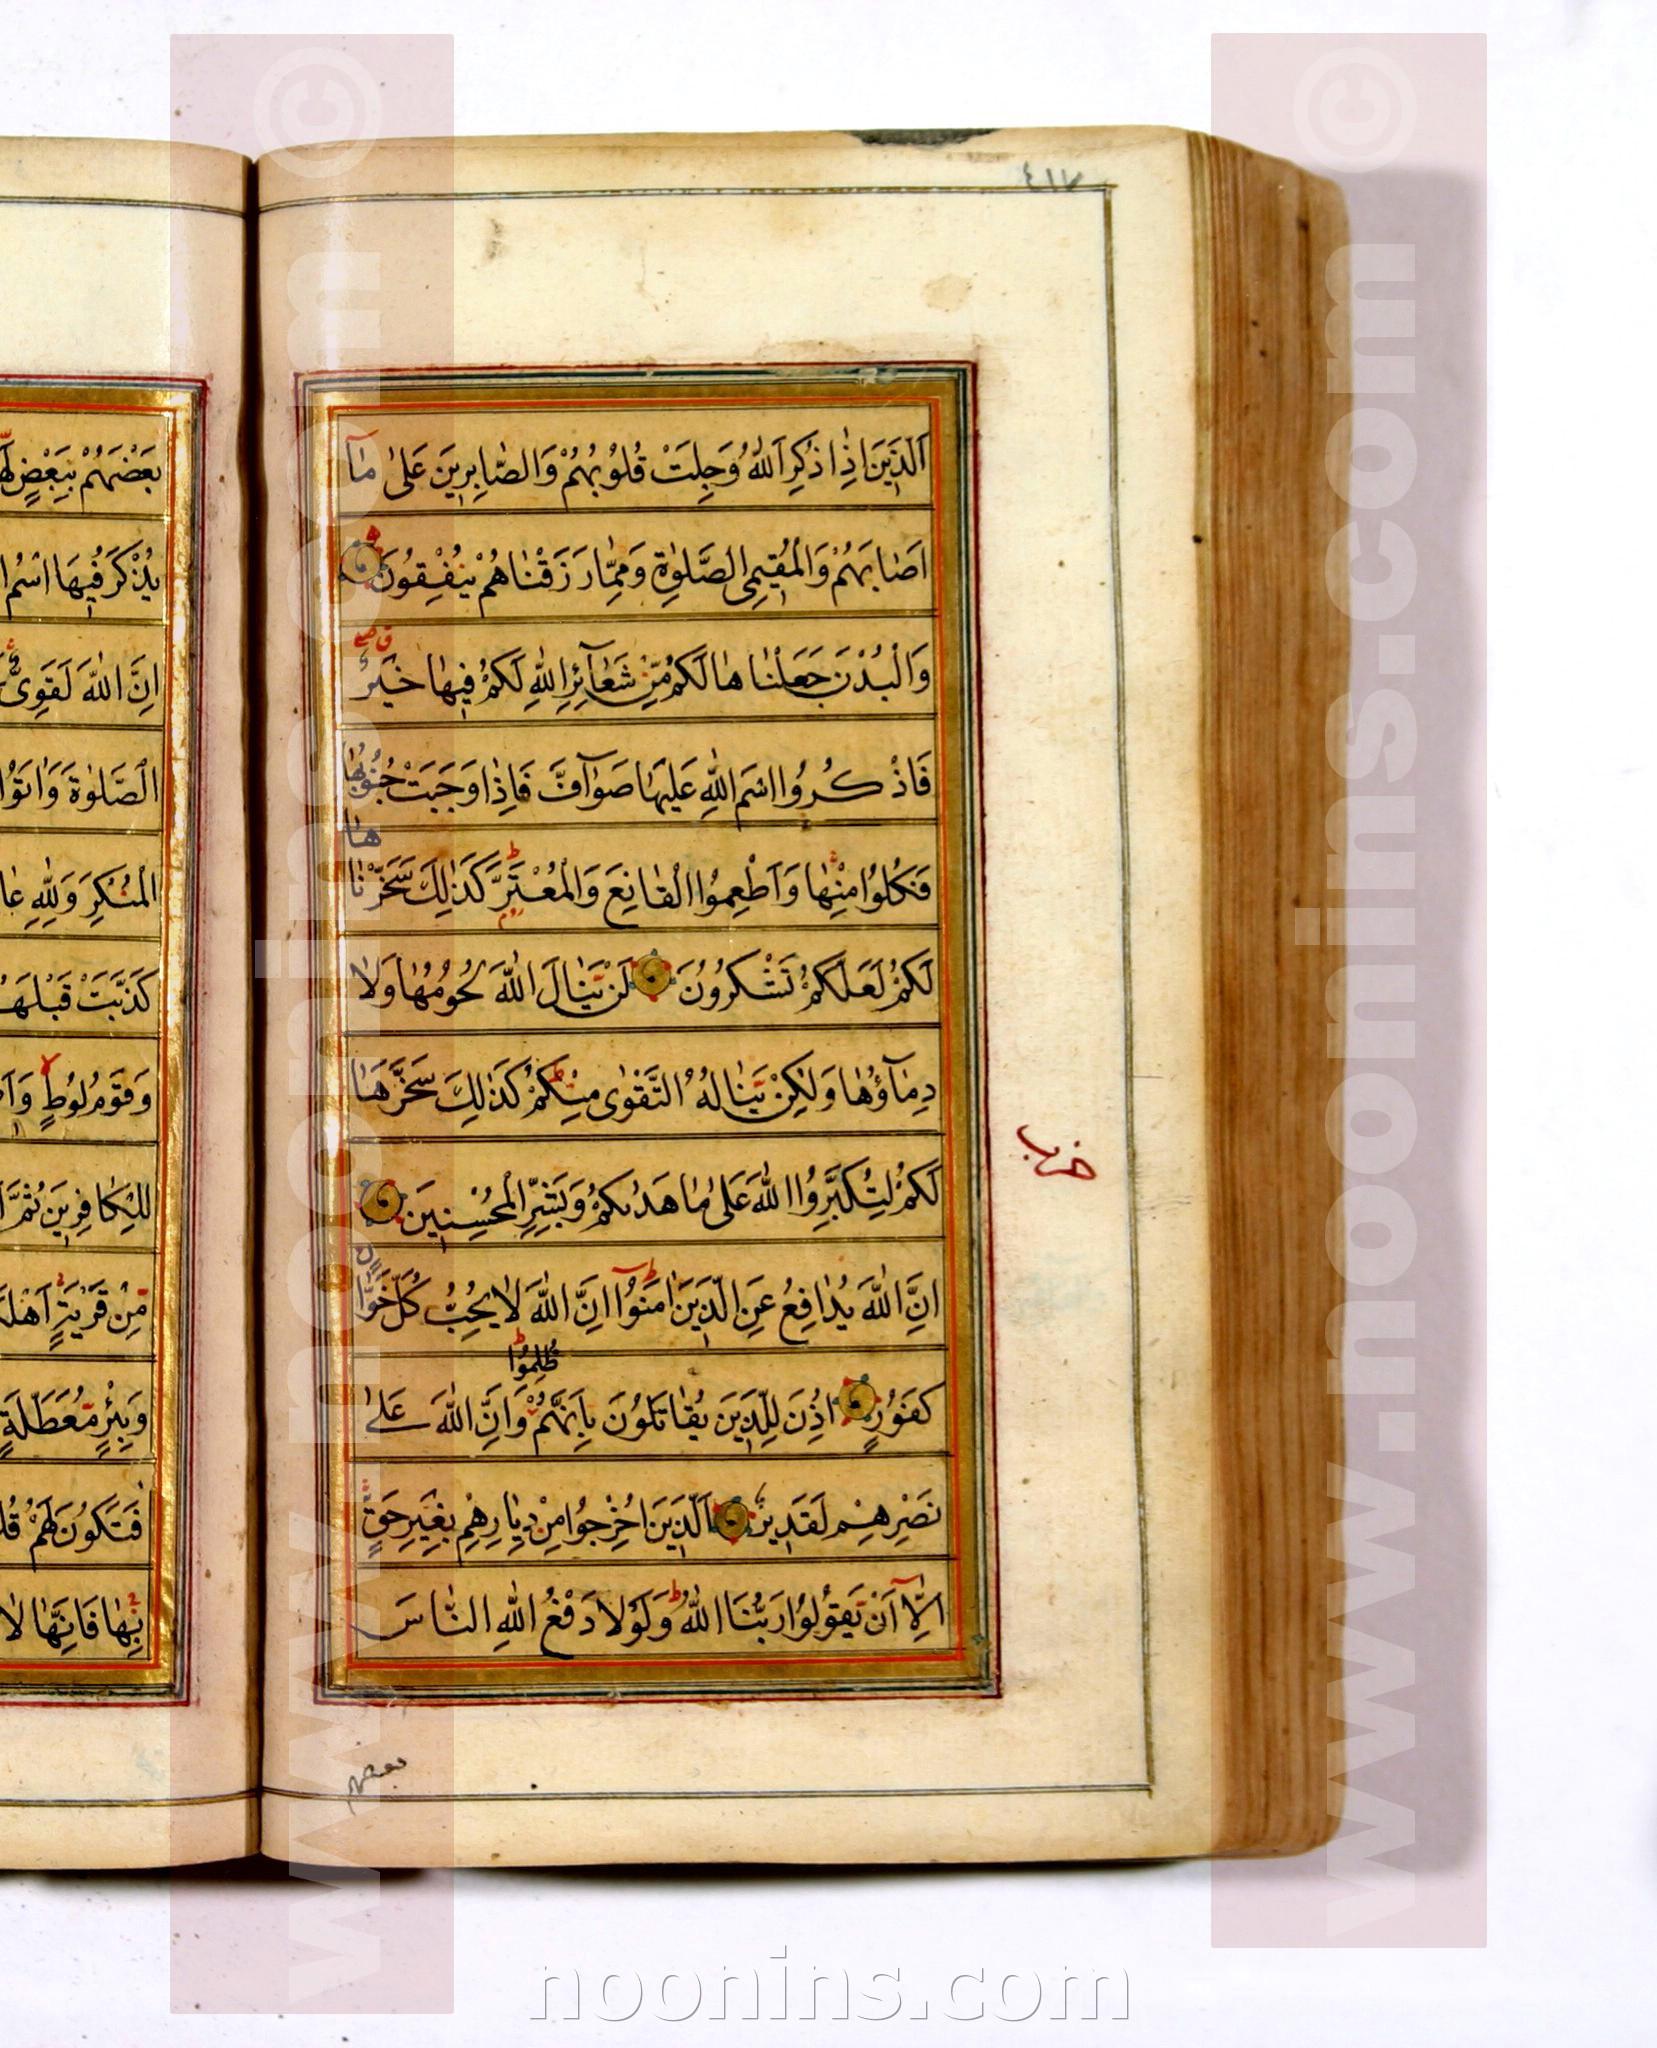 ٤١٧
اَلَّذِينَ اِذٰا ذُكِرَ اَللّٰهُ وَجِلَتْ قُلُوْبُهُمْ وَالصّٰابِرِينَ عَلىٰ مٰآ
اَصٰابَهُمْ وَالْمُقِيمِى الصَّلوٰةِ وَمِمّٰا رَزَقْنٰاهُمْ يُنْفِقُونَ
وَالْبُدْنَ جَعَلْنٰاهٰا لَكُمْ مِنْ شَعٰآئِرِ اللّٰهِ لَكُمْ فِيهٰا خَيْرٌ
فَاذْكُرُوا اسْمَ اللّٰهِ عَلَيْهٰا صَوٰآفَّ فَاِذٰا وَجَبَتْ جُنُوبُهٰا
هٰا
فَكُلُوا مِنْهٰا وَاَطْعِمُوا الْقٰانِعَ وَالْمُعْتَرَّ كَذٰلِكَ سَخَّرْنٰا
لَكُمْ لَعَلَّكُمْ تَشْكُرُونَ لَنْ يَنٰالَ اللّٰهَ لُحُومُهٰا وَلٰا
دِمٰآؤُهٰا وَلٰكِنْ يَنٰالُهُ التَّقْوٰى مِنْكُمْ كَذٰلِكَ سَخَّرَهٰا
حزب
لَكُمْ لِتُكَبِّرُوا اللّٰهَ عَلىٰ مٰا هَدٰىكُمْ وَبَشِّرِ الْمُحْسِنِينَ
اِنَّ اللّٰهَ يُدٰافِعُ عَنِ الَّذِينَ اٰمَنُوآ اِنَّ اللّٰهَ لٰا يُحِبُّ كُلَّ خَوّٰانٍ
ظُلِمُوا
كَفُورٍ اُذِنَ لِلَّذِينَ يُقٰاتَلُونَ بِاَنَّهُمْ وَاِنَّ اللّٰهَ عَلىٰ
نَصْرِهِمْ لَقَدِيرٌ اَلَّذِينَ اُخْرِجُوا مِنْ دِيٰارِهِمْ بِغَيْرِ حَقٍّ
اِلّٰآ اَنْ يَقُولُوا رَبُّنَا اللّٰهُ وَلَوْلٰا دَفْعُ اللّٰهِ النّٰاسَ
بعضهم
بَعْضَهُمْ بِبَعْضٍ
يُذْكَرُ فِيهَا اسْمُ
اِنَّ اللّٰهَ لَقَوِىٌّ
الصَّلوٰةَ وَاٰتَوُا
الْمُنْكَرِ وَلِلّٰهِ عٰا
كَذَّبَتْ قَبْلَهُمْ
وَقَوْمُ لُوطٍ وَاَ
لِلْكٰافِرِينَ ثُمَّ
مِنْ قَرْيَةٍ اَهْلَ
وَبِئْرٍ مُعَطَّلَةٍ
فَتَكُونَ لَهُمْ قُلُ
بِهٰا فَاِنَّهٰا لٰا
© www.noonins.com
© www.noonins.com
noonins.com